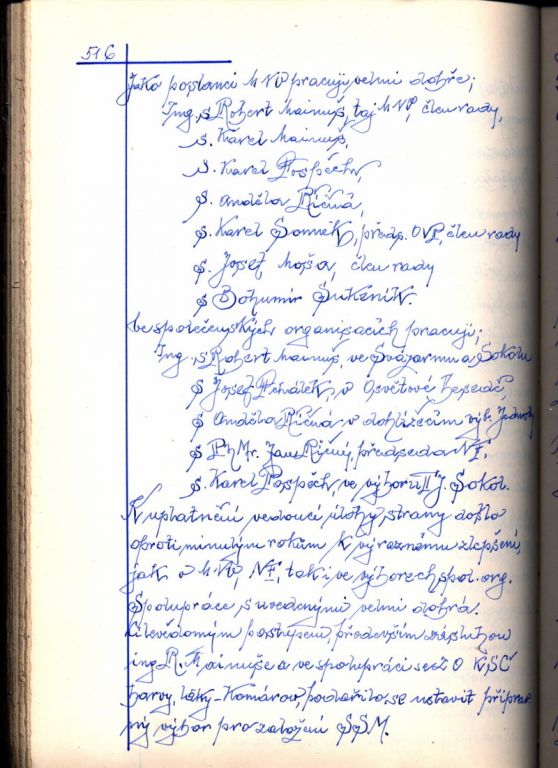 516
Jako poslanci MNV pracují velmi dobře;
Ing. s Robert Mainuš, taj MNV, člen rady,
s. Karel Mainuš,
s. Karel Pospěch,
s. Anděla Říčná,
s. Karel Sommek, předs. OVP, člen rady
s. Josef Moša, člen rady
s Bohumír Sukeník.
Ve společenských organisacích pracují;
Ing. s Robert Mainuš, ve Svazarmu a Sokolu
s Josef, v Osvětové besedě,
s Anděla Říčná v dohlížecím výb. Jednoty
s PhMr. Jan Říčný, předseda NF,
s. Karel Pospěch, ve výboru TJ. Sokol.
K uplatnění vedoucí úlohy strany došlo
oproti minulým rokům k výraznému zlepšení,
jak v MNV, NF, tak i ve výborech spol. org.
Spolupráce s uvedenými velmi dobrá.
Cílevědomým postupem, především zásluhou
ing R. Mainuše a ve spolupráci se ZO KSČ
barvy, laky - Komárov, podařilo se ustavit příprav-
ný výbor pro založení SSM.